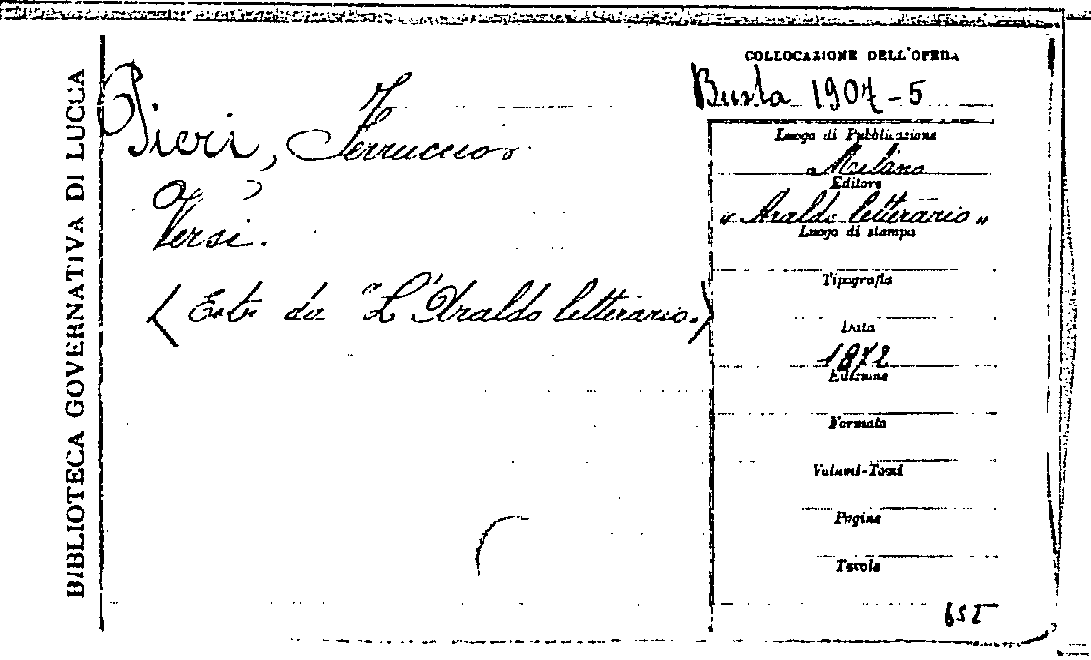 BIBLIOTECA GOVERNATIVA DI LUCCA
Pieri, Ferruccio.
Versi.
(Estr. da "L'Araldo letterario.)
COLLOCAZIONE DELL'OPERA
Busta 1907-5
Luogo di Pubblicazione
Milano
Editore
"Araldo letterario"
Luogo di stampa
Tipografia
Data
1872
Edizione
Formato
Volumi-Tomi
Pagine
Tavole